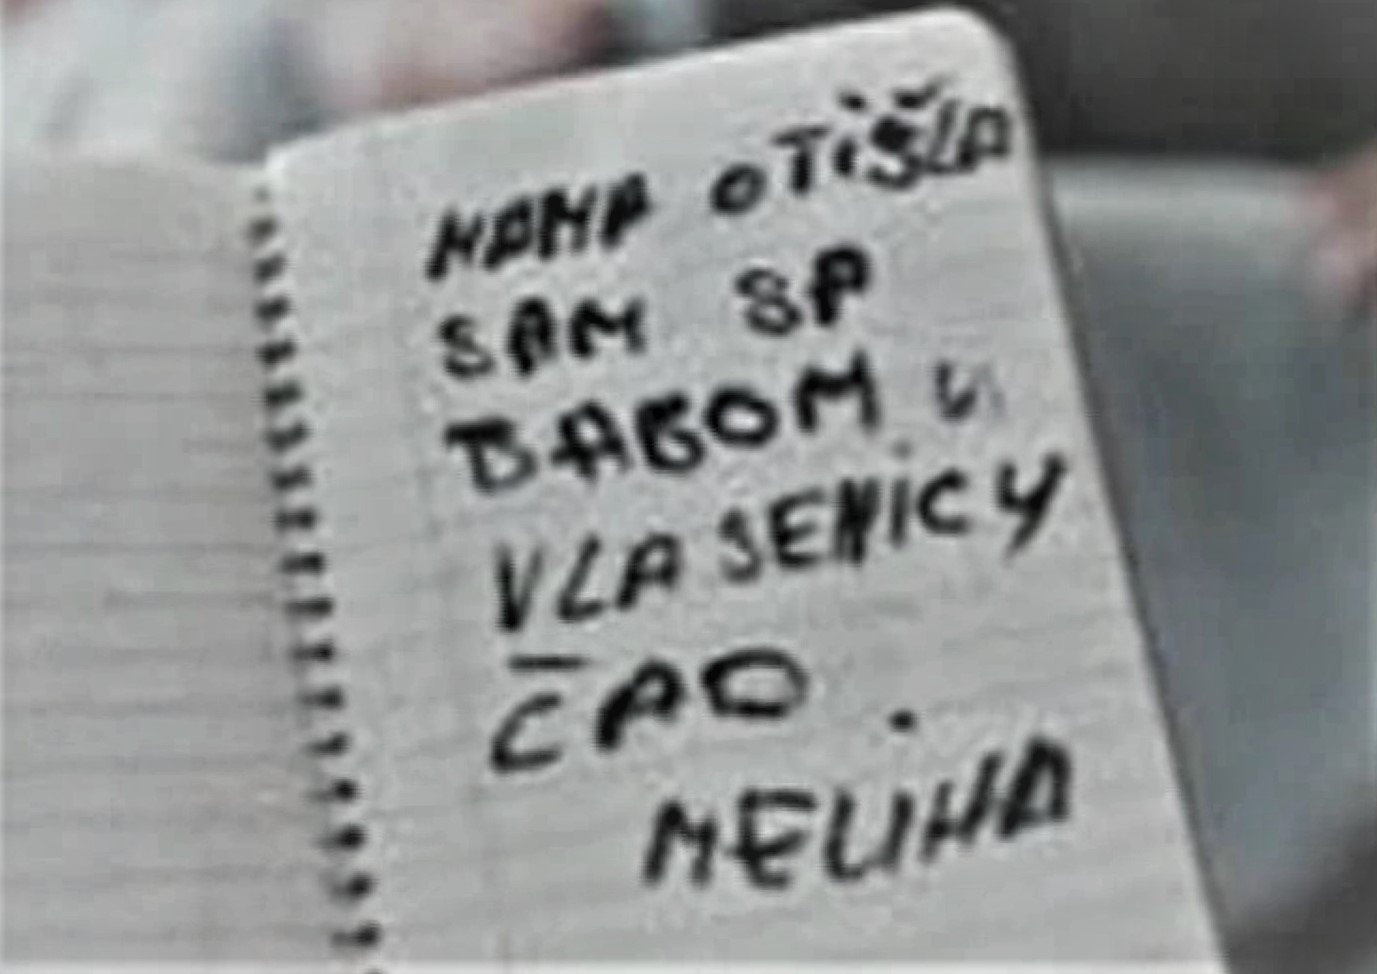 MAMA OTIŠLA
SAM SA
BABOM U
VLASENICU
ČAO.
MELIHA